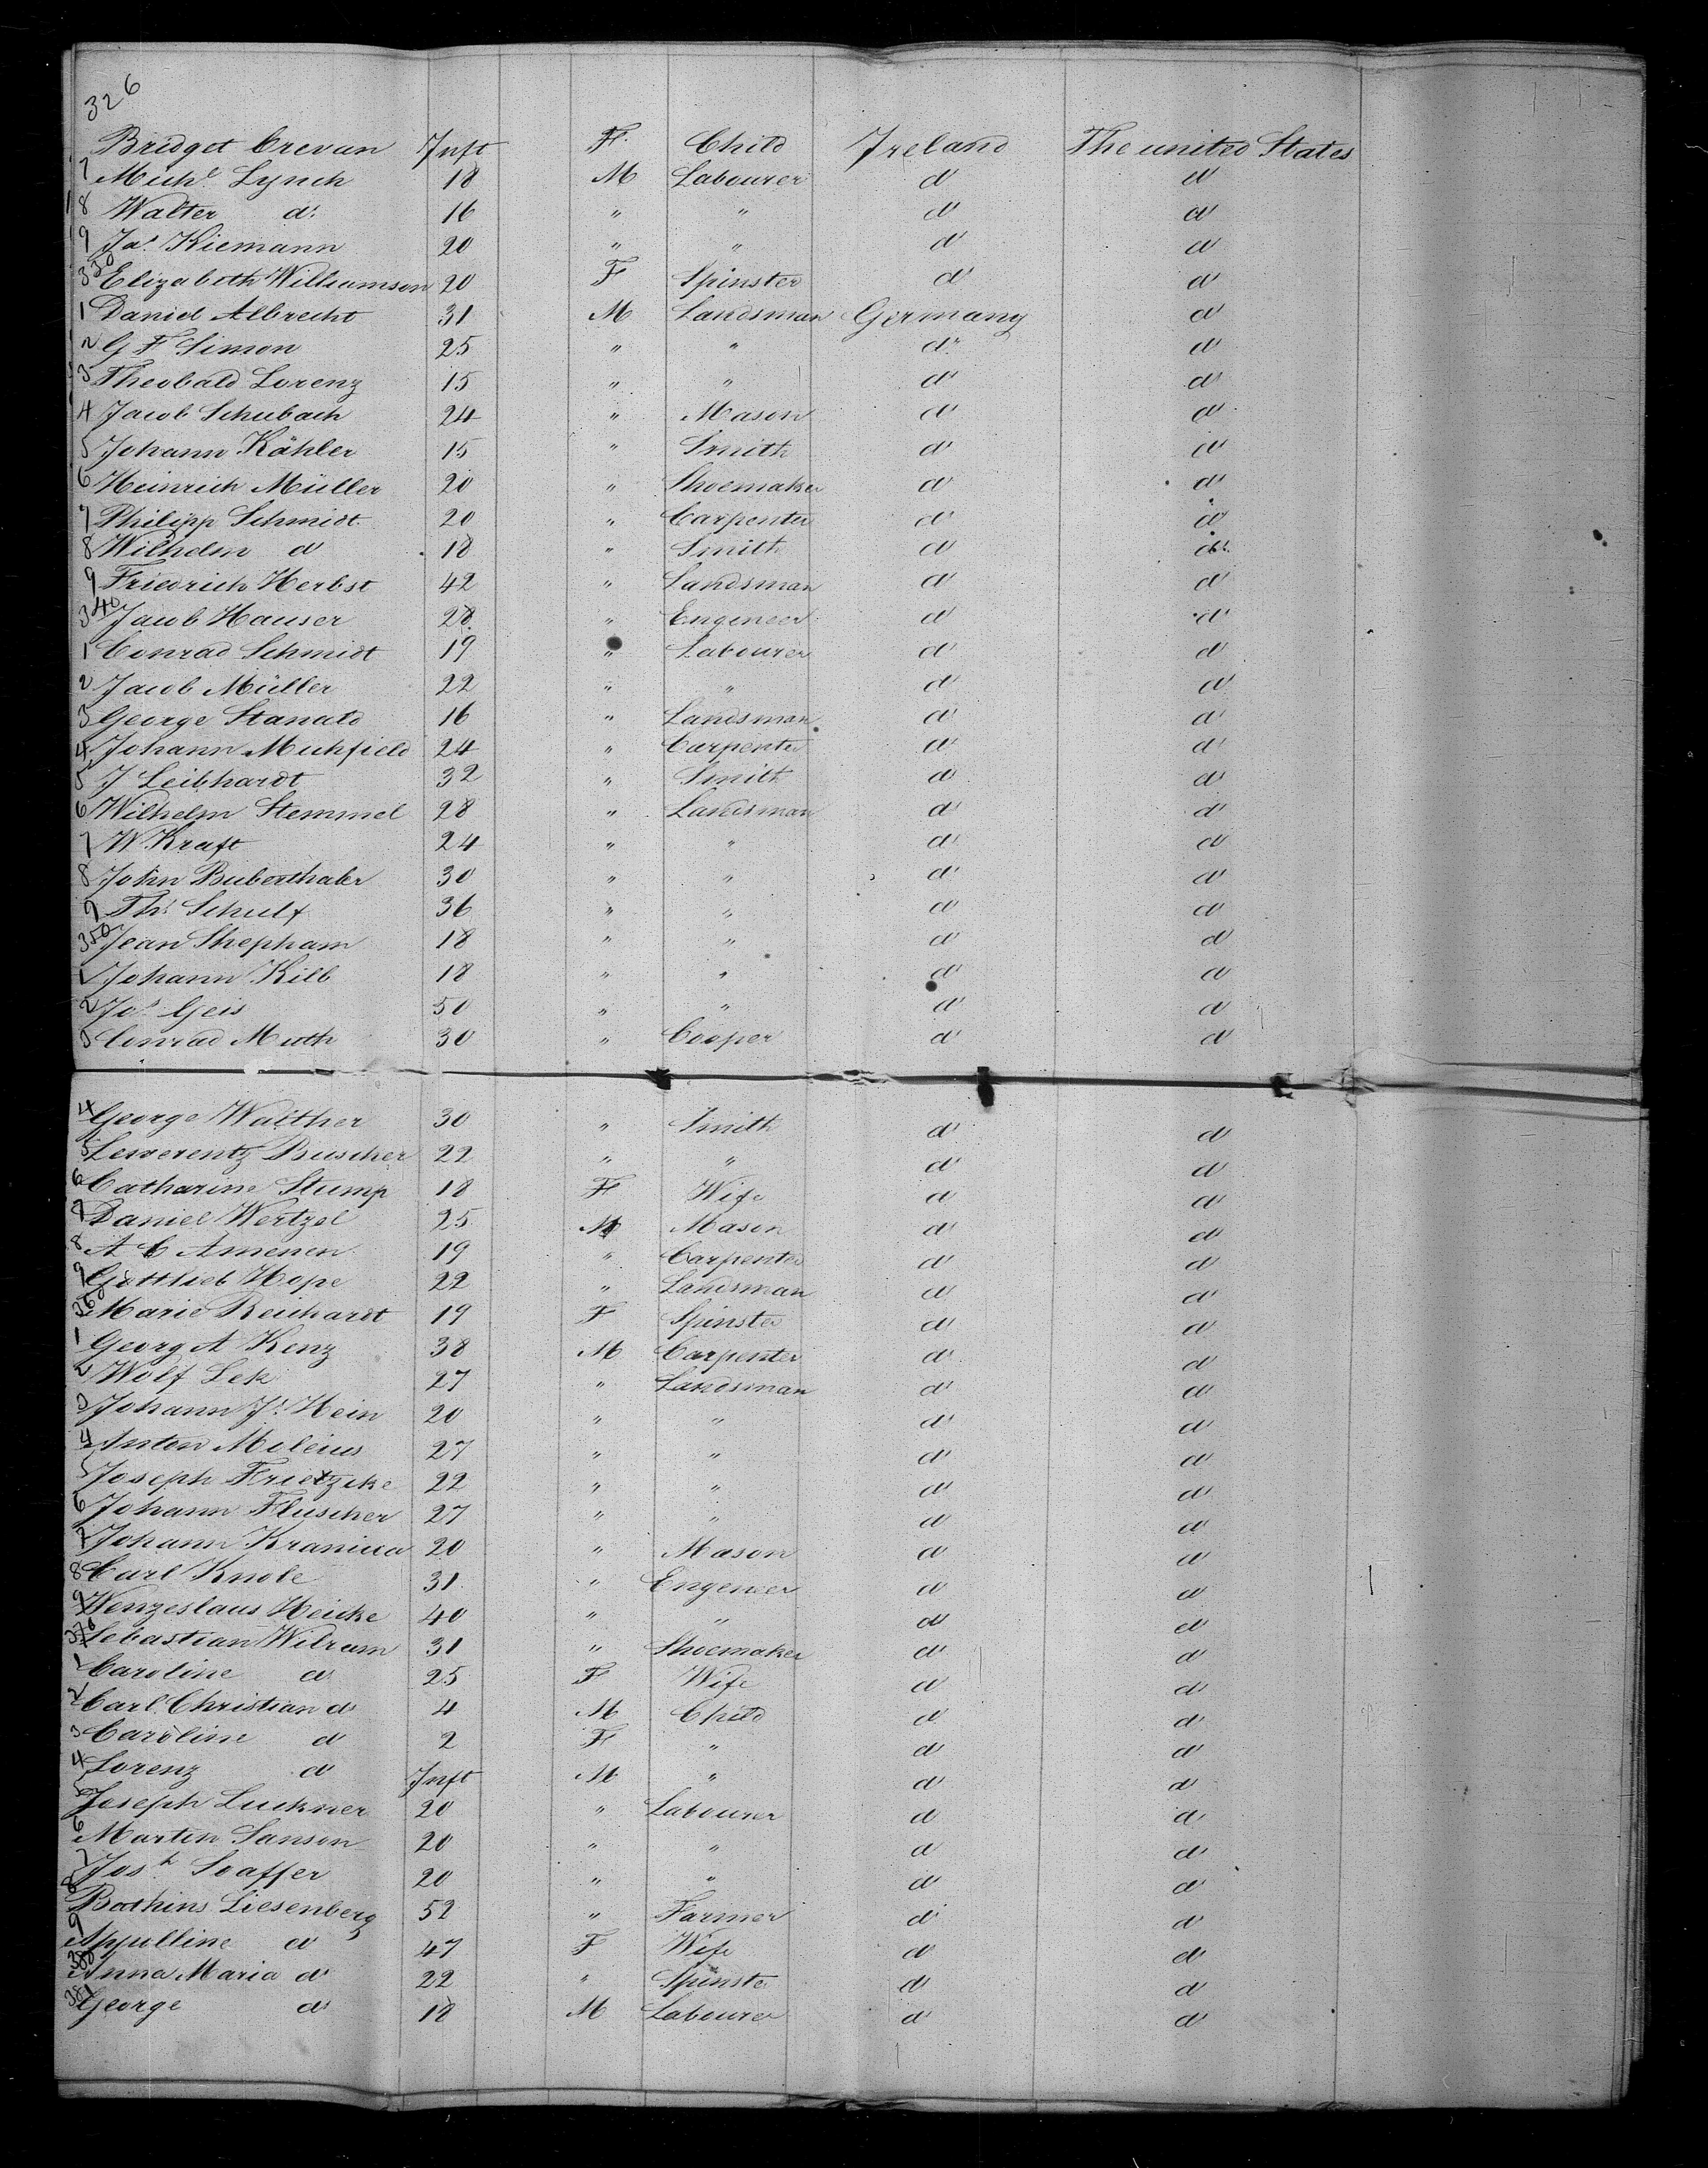 326
Bridget Crevan Inft F. Child Ireland The united States
7 Michl. Lynch 18 M Labourer do do
8 Walter do. 16 " " do do
9 Jas. Kiemann 20 " " do do
330 Elizabeth Williamson 20 F Spinster do do
1 Daniel Albrecht 31 M Landsman Germany do
2 G F Simon 25 " " do. do
3 Theobald Lorenz 15 " " do do
4 Jacob Schubach 24 " Mason do do
5 Johann Kähler 15 " Smith do do
6 Heinrich Müller 20 " Shoemaker do do
7 Philipp Schmidt 20 " Carpenter do do
8 Wilhelm do 18 " Smith do do.
9 Friedrich Herbst 42 " Landsman do do
340 Jacob Hauser 28 " Engeneer do do
1 Conrad Schmidt 19 " Labourer do do
2 Jacob Müller 22 " " do do
3 George Stanato 16 " Landsman do do
4 Johann Muhfield 24 " Carpenter do do
5 J Leibhardt 32 " Smith do do
6 Wilhelm Stemmel 28 " Landsman do do
7 W Kraft 24 " " do do
8 John Buberthaler 30 " " do do
9 Ths. Schulf 36 " " do do
350 Jean Shepham 18 " " do do
1 Johann Kilb 18 " " do do
2 Jos. Geis 50 " " do do
3 Conrad Muth 30 " Cooper do do
4 George Walther 30 " Smith do do
5 Lewerentz Buscher 22 " " do do
6 Catharine Stump 18 F Wife do do
7 Daniel Wertzel 25 M Mason do do
8 A C Amenen 19 " Carpenter do do
9 Gottlieb Hope 22 " Landsman do do
360 Marie Reichardt 19 F Spinster do do
1 Georg A Kenz 38 M Carpenter do do
2 Wolf Lek 27 " Landsman do do
3 Johann Jr. Hein 20 " " do do
4 Anton Mileius 27 " " do do
5 Joseph Frietzcke 22 " " do do
6 Johann Fluscher 27 " " do do
7 Johann Kranica 20 " Mason do do
8 Carl Knobe 31 " Engeneer do do
9 Wenzeslaus Heicke 40 " " do do
370 Sebastian Wilrum 31 " Shoemaker do do
1 Caroline do 25 F Wife do do
2 Carl Christian do 4 M Child do do
3 Caroline do 2 F " do do
4 Lorenz do Inft M " do do
5 Joseph Luckner 20 " Labourer do do
6 Martin Sanson 20 " " do do
7 Josh. Soaffer 20 " " do do
8 Bathins Liesenberg 52 " Farmer do do
9 Appulline do 47 F Wife do do
380 Anna Maria do 22 " Spinster do do
381 George do 18 M Labourer do do